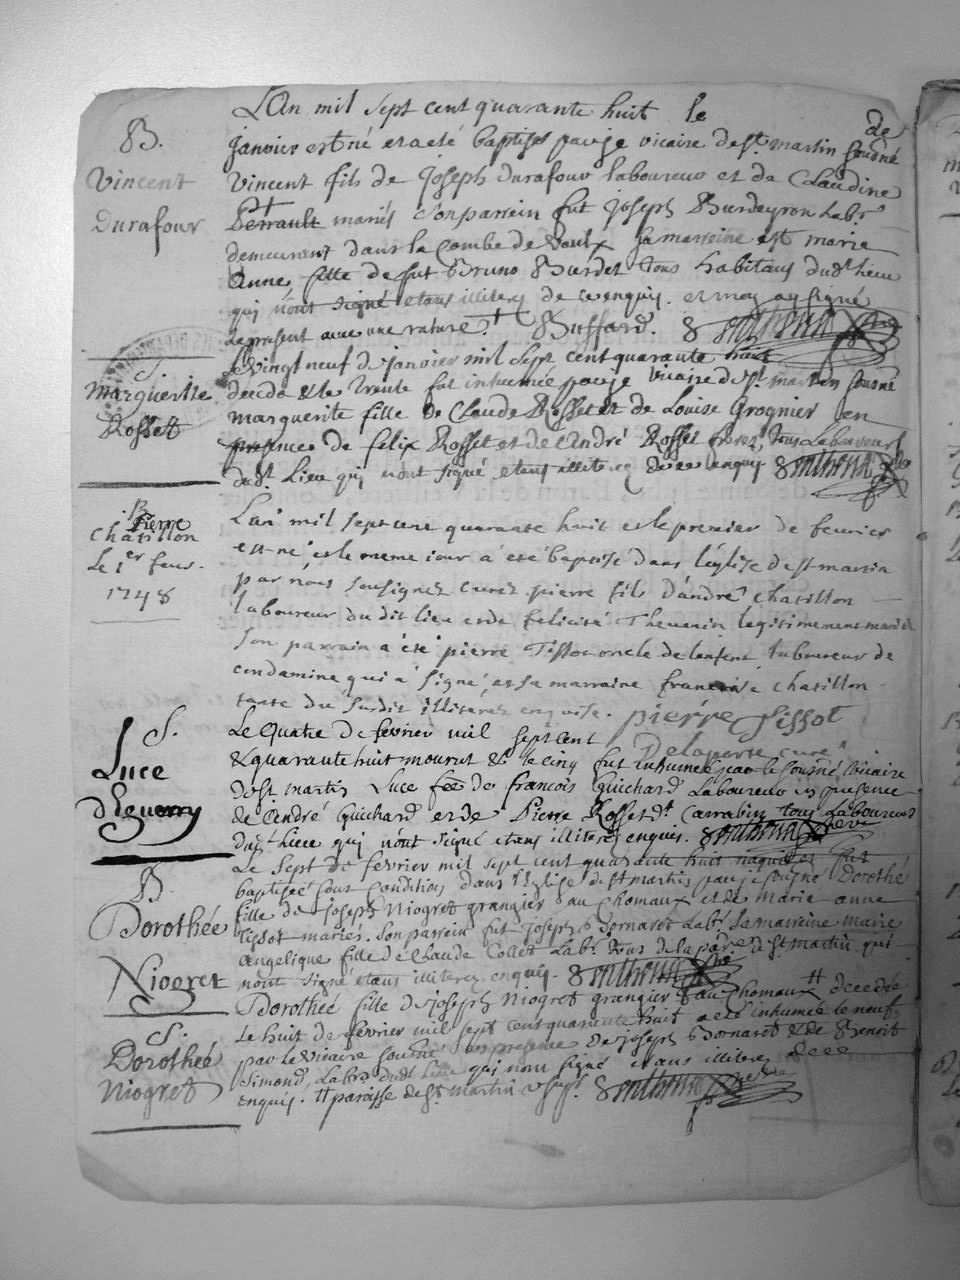 L'An mil sept cent quarante huit le de
B.
Vincent
Durafour
janvier est né et a eté baptisé par je vicaire de st martin sousné
Vincent fils de joseph Durafour laboureur et de Claudine
Perrault mariés son parrein fut joseph Burdeyron Labr
demeurant dans la Combe de Vaulx sa marreine est marie
Anne fille de fut Bruno Burdet tous habitans dudt lieu
qui n'ont signé etans illiteres de ce enquis. et moy ay signé
le present avec une rature. Buffard.
S.
Marguerite
Rosset
le vingt neuf de janvier mil sept cent quarante huit
deceda & le trente fut inhumée par je vicaire de st martin sousné
marguerite fille de Claude Rosset et de Louise Grognier en
presence de felix Rosset et de André Rosset freres, tous Laboureurs
dudt Lieu qui n'ont signé etans illiteres de ce enquis
B.
Pierre
Chatillon
le 1er feur.
1748
L'an mil sept cent quarante huit et le premier de feurier
est né et le meme iour a été baptisé dans l'église de st martin
par nous soussignez curez pierre fils d'andré chatillon
laboureur du dit lieu et de felicité Thevenin legitimement mariés
son parrain a été pierre Tissot oncle de l'enfent, laboureur de
condamine qui a signé, et sa marraine francoise chatillon
tante du susdit illiterez enquise. pierre Tissot
Delaporte curé
S.
Luce
d'Eguerry
Le Quatre de fevrier mil sept cent
& quarante huit mourut & le cinq fut inhumée par le sousné vicaire
de st martin Luce fée de francois Guichard Laboureur en presence
de André Guichard et de Pierre Rosset dt Carrabin tous Laboureurs
dudt Lieu qui n'ont signé etans illiteres enquis.
B.
Dorothée
Niogret
Le sept de fevrier mil sept cent quarante huit naquit et fut
baptisée sous condition dans l'Eglise de st martin par je sousné Dorothé
fille de joseph Niogret grangier au Chomaux et de marie anne
Tissot mariés. son parrein fut joseph Bornarot Labr sa marreine marie
angelique fille de Claude Collet Labr tous de la pare de st martin qui
n'ont signé etans illiteres enquis.
S.
Dorothée
Niogret
Dorothée fille de joseph Niogret grangier au Chomaux # decedée
le huit de fevrier mil sept cent quarante huit a eté inhumée le neuf
par le vicaire sousné en presence de joseph Bornarot & de Benoit
Simond, Labrs dudt Lieu qui n'ont signé etans illiteres de ce
enquis. # paroisse de st martin